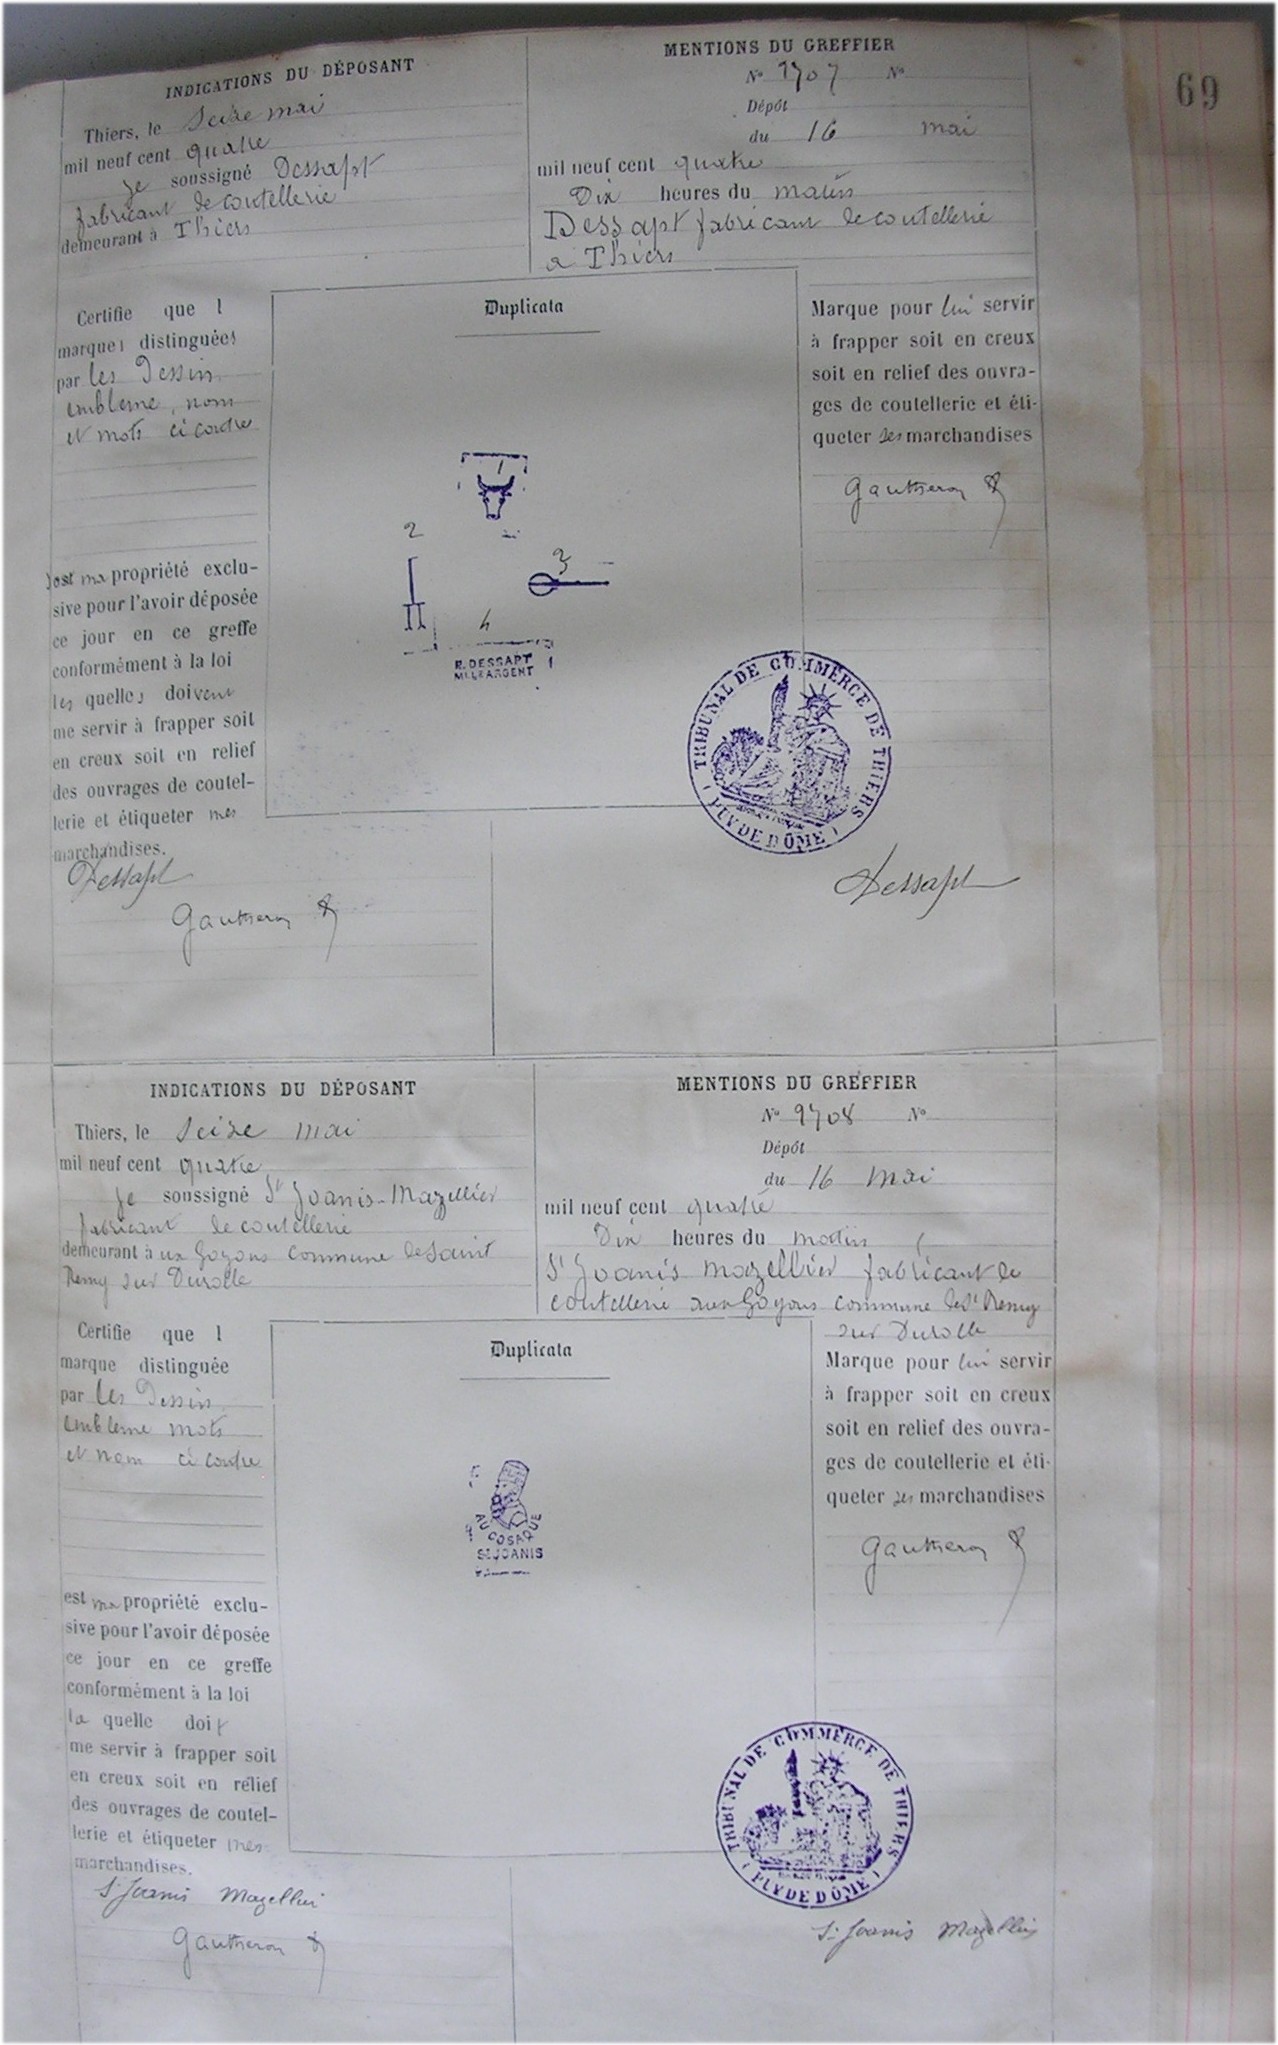 69
INDICATIONS DU DÉPOSANT
Thiers, le Seize mai
mil neuf cent quatre
je soussigné Dessapt
fabricant de coutellerie
demeurant à Thiers
MENTIONS DU GREFFIER
N° 9707 N°
Dépôt
du 16 mai
mil neuf cent quatre
Dix heures du matin
Dessapt fabricant de coutellerie
a Thiers
Certifie que l
marques distinguées
par les Dessin
embleme, nom
et mots ci contre
est ma propriété exclu-
sive pour l'avoir déposée
ce jour en ce greffe
conformément à la loi
les quelles doivent
me servir à frapper soit
en creux soit en relief
des ouvrages de coutel-
lerie et étiqueter mes
marchandises.
Dessapt
Gautheron
Duplicata
1
2
3
4
R. DESSAPT
ARGENT
Marque pour lui servir
à frapper soit en creux
soit en relief des ouvra-
ges de coutellerie et éti-
queter ses marchandises
Gautheron
TRIBUNAL DE COMMERCE DE THIERS
( PUY DE DÔME )
Dessapt
INDICATIONS DU DÉPOSANT
Thiers, le Seize mai
mil neuf cent quatre
je soussigné St Joanis-Mazellier
fabricant de coutellerie
demeurant à aux Goyons commune de Saint
Remy sur Durolle
MENTIONS DU GREFFIER
N° 9708 N°
Dépôt
du 16 mai
mil neuf cent quatre
Dix heures du matin
St Joanis mazellier fabricant de
coutellerie aux Goyons commune de St Remy
sur Durolle
Certifie que l
marque distinguée
par les Dessin
embleme mots
et nom ci contre
est ma propriété exclu-
sive pour l'avoir déposée
ce jour en ce greffe
conformément à la loi
la quelle doit
me servir à frapper soit
en creux soit en relief
des ouvrages de coutel-
lerie et étiqueter mes
marchandises.
St Joanis Mazellier
Gautheron
Duplicata
AU COSAQUE
ST JOANIS
Marque pour lui servir
à frapper soit en creux
soit en relief des ouvra-
ges de coutellerie et éti-
queter ses marchandises
Gautheron
TRIBUNAL DE COMMERCE DE THIERS
( PUY DE DÔME )
St Joanis Mazellier